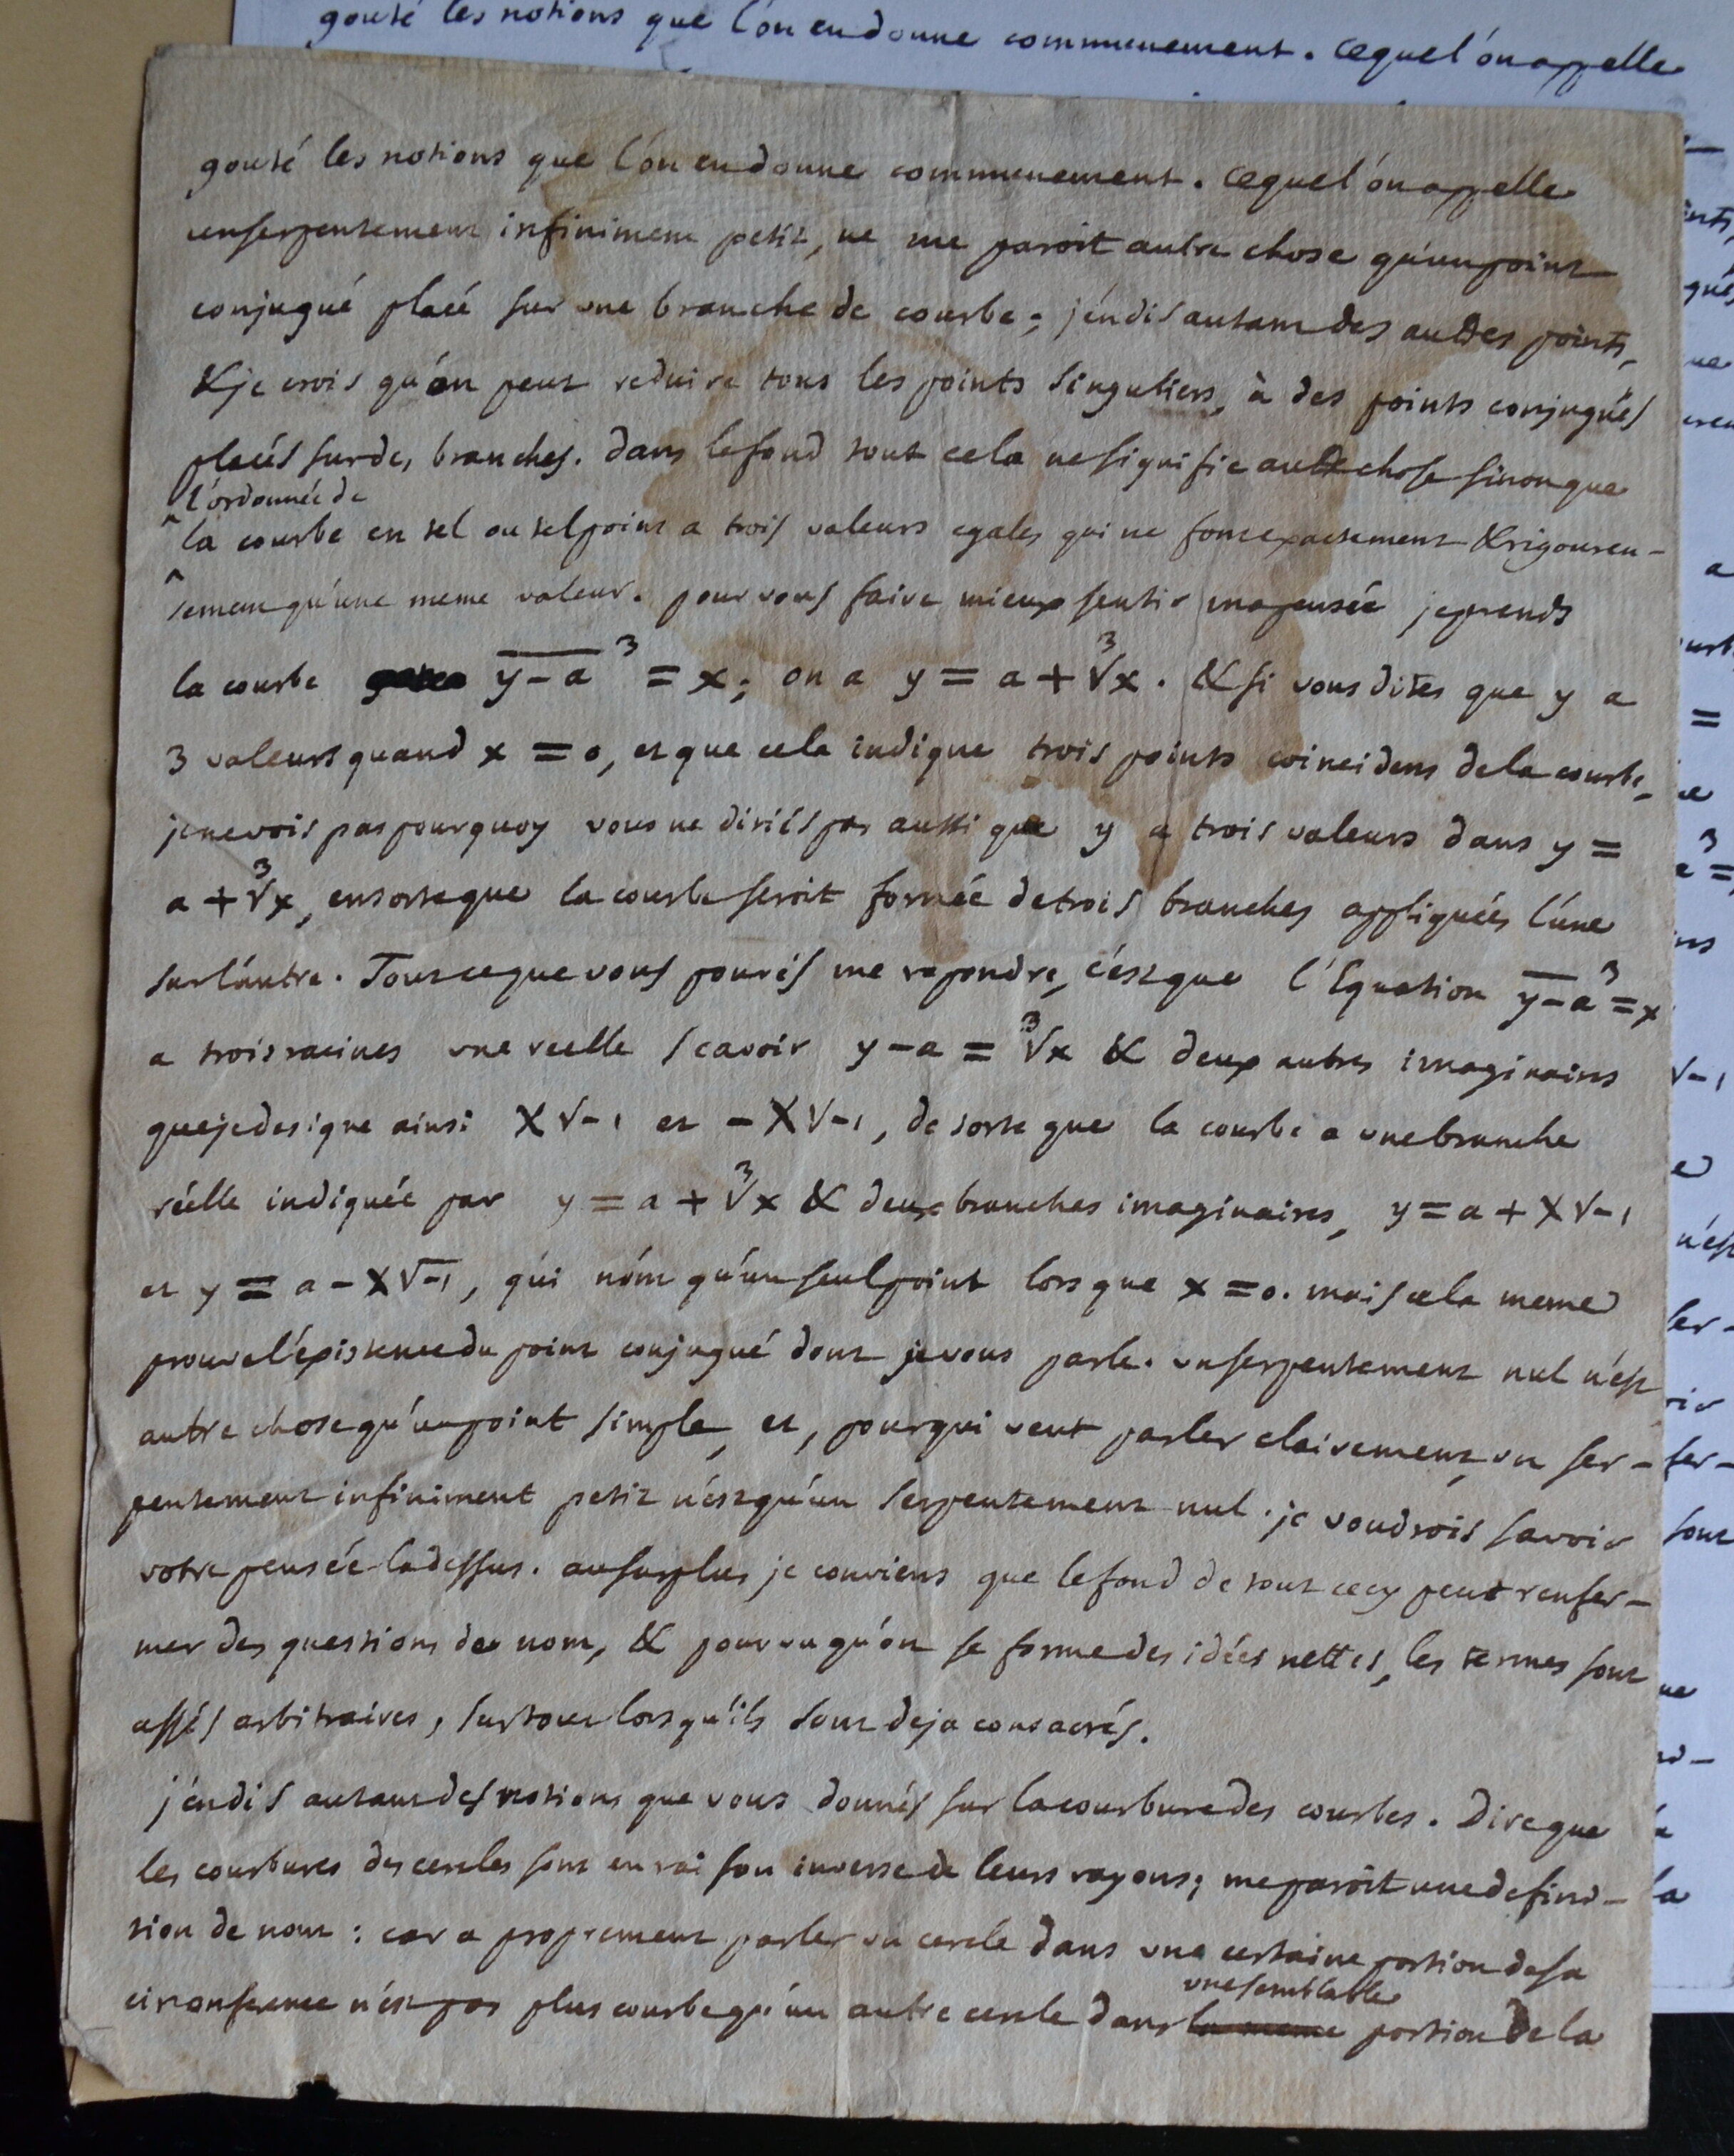 gouté les notions que l'on en donne communement. ce que l'on appelle
gouté les notions que l'on en donne communement. ce que l'on appelle
un serpentement infiniment petit, ne me paroit autre chose qu'un point
conjugué placé sur une branche de courbe ; j'en dis autant des autres points,
& je crois qu'on peut reduire tous les points singuliers, à des points conjugués
placés sur des branches. dans le fond tout cela ne signifie autre chose sinon que
l'ordonnée de
la courbe en tel ou tel point a trois valeurs egales qui ne font exactement & rigoureu-
sement qu'une meme valeur. pour vous faire mieux sentir ma pensée je prends
la courbe y-a³ = x; on a y = a + ∛x. & si vous dites que y a
3 valeurs quand x = 0, et que cela indique trois points coincidens de la courbe,
je ne vois pas pourquoy vous ne diriés pas aussi que y a trois valeurs dans y =
a + ∛x, en sorte que la courbe seroit formée de trois branches appliquées l'une
sur l'autre. Tout ce que vous pourés me repondre, c'est que l'Equation y-a³ = x
a trois racines une reelle scavoir y-a = ∛x & deux autres imaginaires
que je designe ainsi X√-1 et -X√-1, de sorte que la courbe a une branche
réelle indiquée par y = a + ∛x & deux branches imaginaires, y = a + X√-1
et y = a - X√-1, qui n'ont qu'un seul point lorsque x = 0. mais cela meme
prouve l'existence du point conjugué dont je vous parle. un serpentement nul n'est
autre chose qu'un point simple, et, pour qui veut parler clairement, un ser-
pentement infiniment petit n'est qu'un serpentement nul. je voudrois savoir
votre pensée la dessus. au surplus je conviens que le fond de tout cecy peut renfer-
mer des questions de nom, & pourvu qu'on se forme des idées nettes, les termes sont
assés arbitraires, surtout lorsqu'ils sont deja consacrés.
j'en dis autant des notions que vous donnés sur la courbure des courbes. Dire que
les courbures des cercles sont en raison inverse de leurs rayons; me paroit une defini-
tion de nom : car a proprement parler un cercle dans une certaine portion de sa
une semblable
circonference n'est pas plus courbe qu'un autre cercle dans la meme portion de la